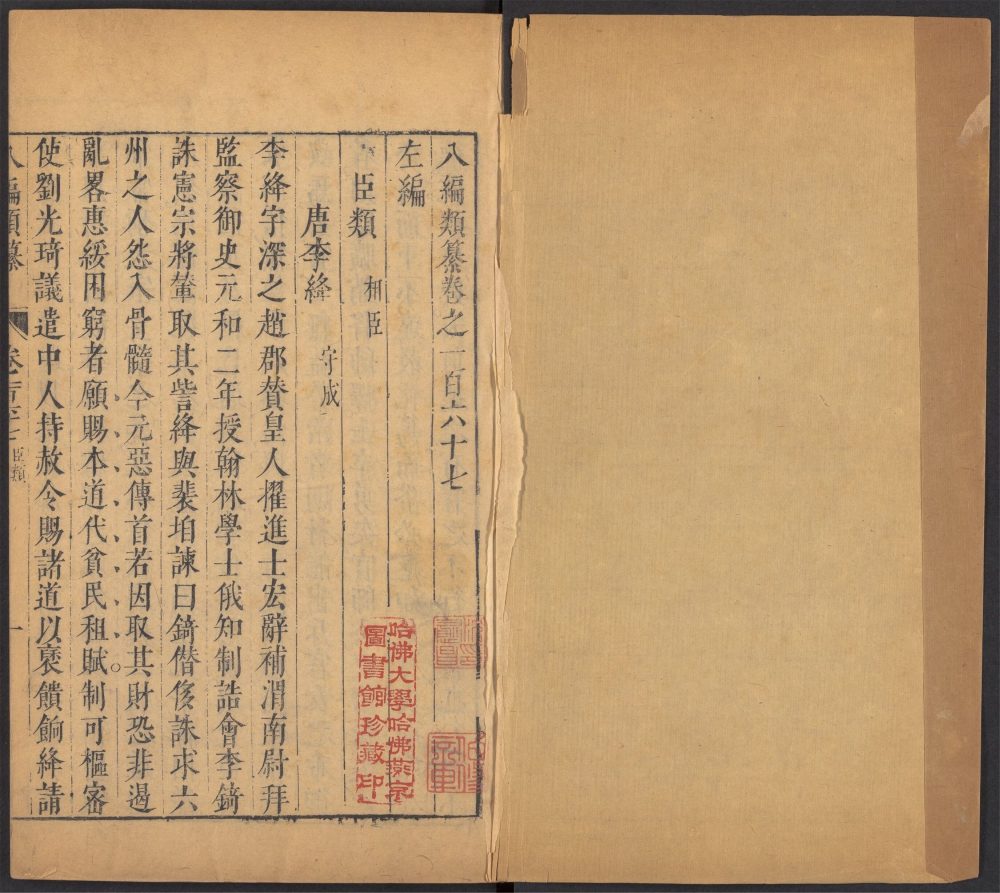 八編類纂卷之一百六十七
左編
臣類 相臣
唐李絳 守成
李絳字深之趙郡贊皇人擢進士宏辭補渭南尉拜
監察御史元和二年授翰林學士俄知制誥會李錡
誅憲宗將輦取其貲絳與裴垍諫曰錡僣侈誅求六
州之人怨入骨髓今元惡傳首若因取其財恐非遏
亂畧惠綏困窮者願賜本道代貧民租賦制可樞密
使劉光琦議遣中人持赦令賜諸道以裒饋餉絳請
八編類纂 卷之一百六十七 臣類 一
哈佛大學哈佛燕京
圖書館珍藏印